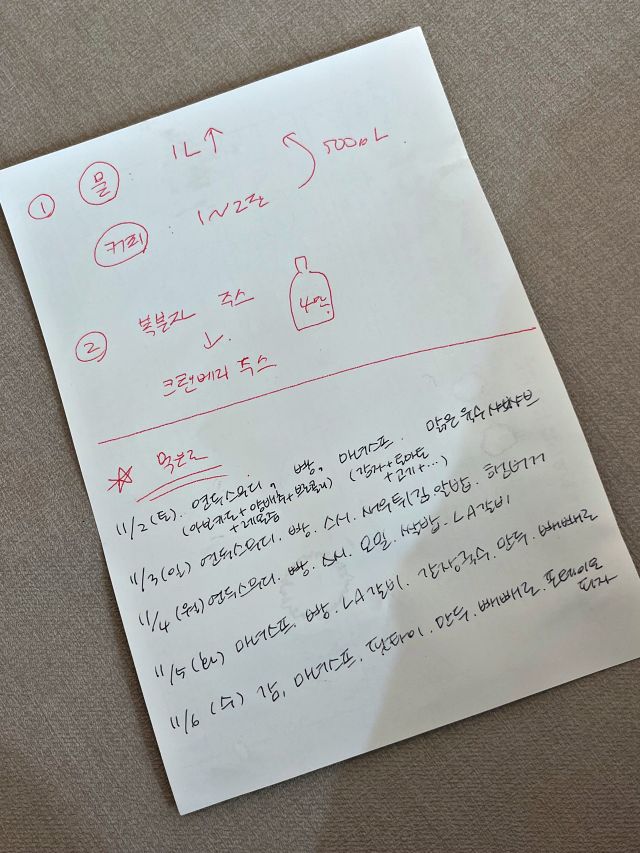 ① 물 : 1L↑
커피 : 1~2잔 500mL
② 복분자 주스 4인
↓
크랜베리 주스
☆ 먹은 것
11/2 (토). 연두스무디, 빵, 야채스프. 맑은 육수 샤브샤브
(아보카도+양배추+브로콜리 (감자+토마토
+레몬즙) +고기+...)
11/3 (일) 연두스무디. 빵. 스시. 새우튀김 알밥. 햄버거
11/4 (월) 연두스무디. 빵. 스시. 오일. 쌈밥. LA갈비
11/5 (화) 야채스프. 빵. LA갈비. 만두. 빼빼로
11/6 (수) 감, 야채스프, 팟타이. 만두. 빼빼로. 포테이토
피자